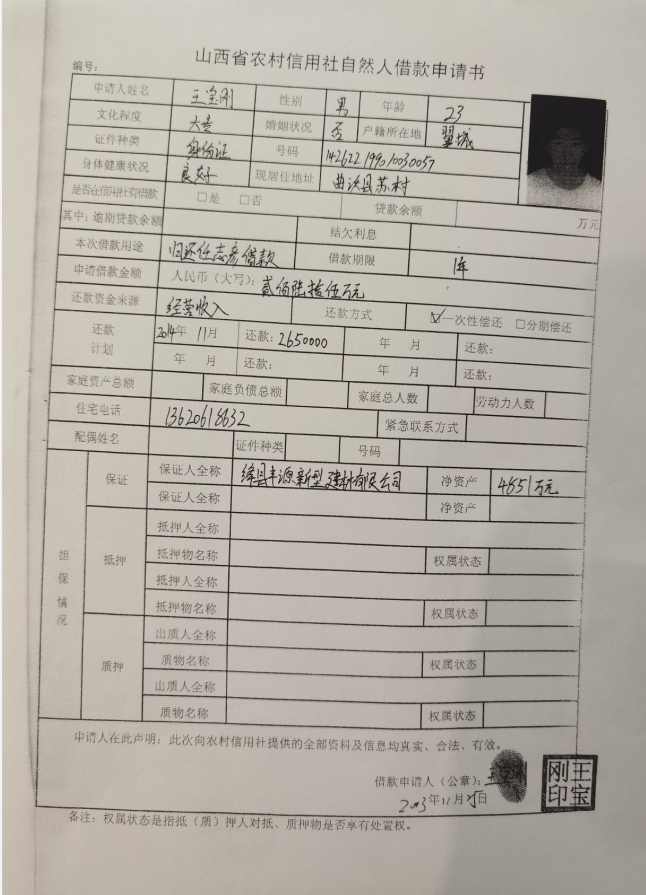 山西省农村信用社自然人借款申请书
编号:
申请人姓名 王宝刚 性别 男 年龄 23
文化程度 大专 婚姻状况 否 户籍所在地 翼城
证件种类 身份证 号码 142622199010030057
身体健康状况 良好 现居住地址 曲沃县苏村
是否在信用社有借款 □是 □否 贷款余额 万元
其中:逾期贷款余额 结欠利息
本次借款用途 归还任志彦借款 借款期限 1年
申请借款金额 人民币(大写):贰佰陆拾伍万元
还款资金来源 经营收入 还款方式 ☑一次性偿还 □分期偿还
还款计划 2014年 11月 还款:2650000 年 月 还款:
年 月 还款: 年 月 还款:
家庭资产总额 家庭负债总额 家庭总人数 劳动力人数
住宅电话 13620618632 紧急联系方式
配偶姓名 证件种类 号码
担保情况 保证 保证人全称 绛县丰源新型建材有限公司 净资产 4851万元
保证人全称 净资产
抵押 抵押人全称
抵押物名称 权属状态
抵押人全称
抵押物名称 权属状态
质押 出质人全称
质物名称 权属状态
出质人全称
质物名称 权属状态
申请人在此声明:此次向农村信用社提供的全部资料及信息均真实、合法、有效。
借款申请人(公章):王
王宝刚印
2013年11月25日
备注:权属状态是指抵(质)押人对抵、质押物是否享有处置权。